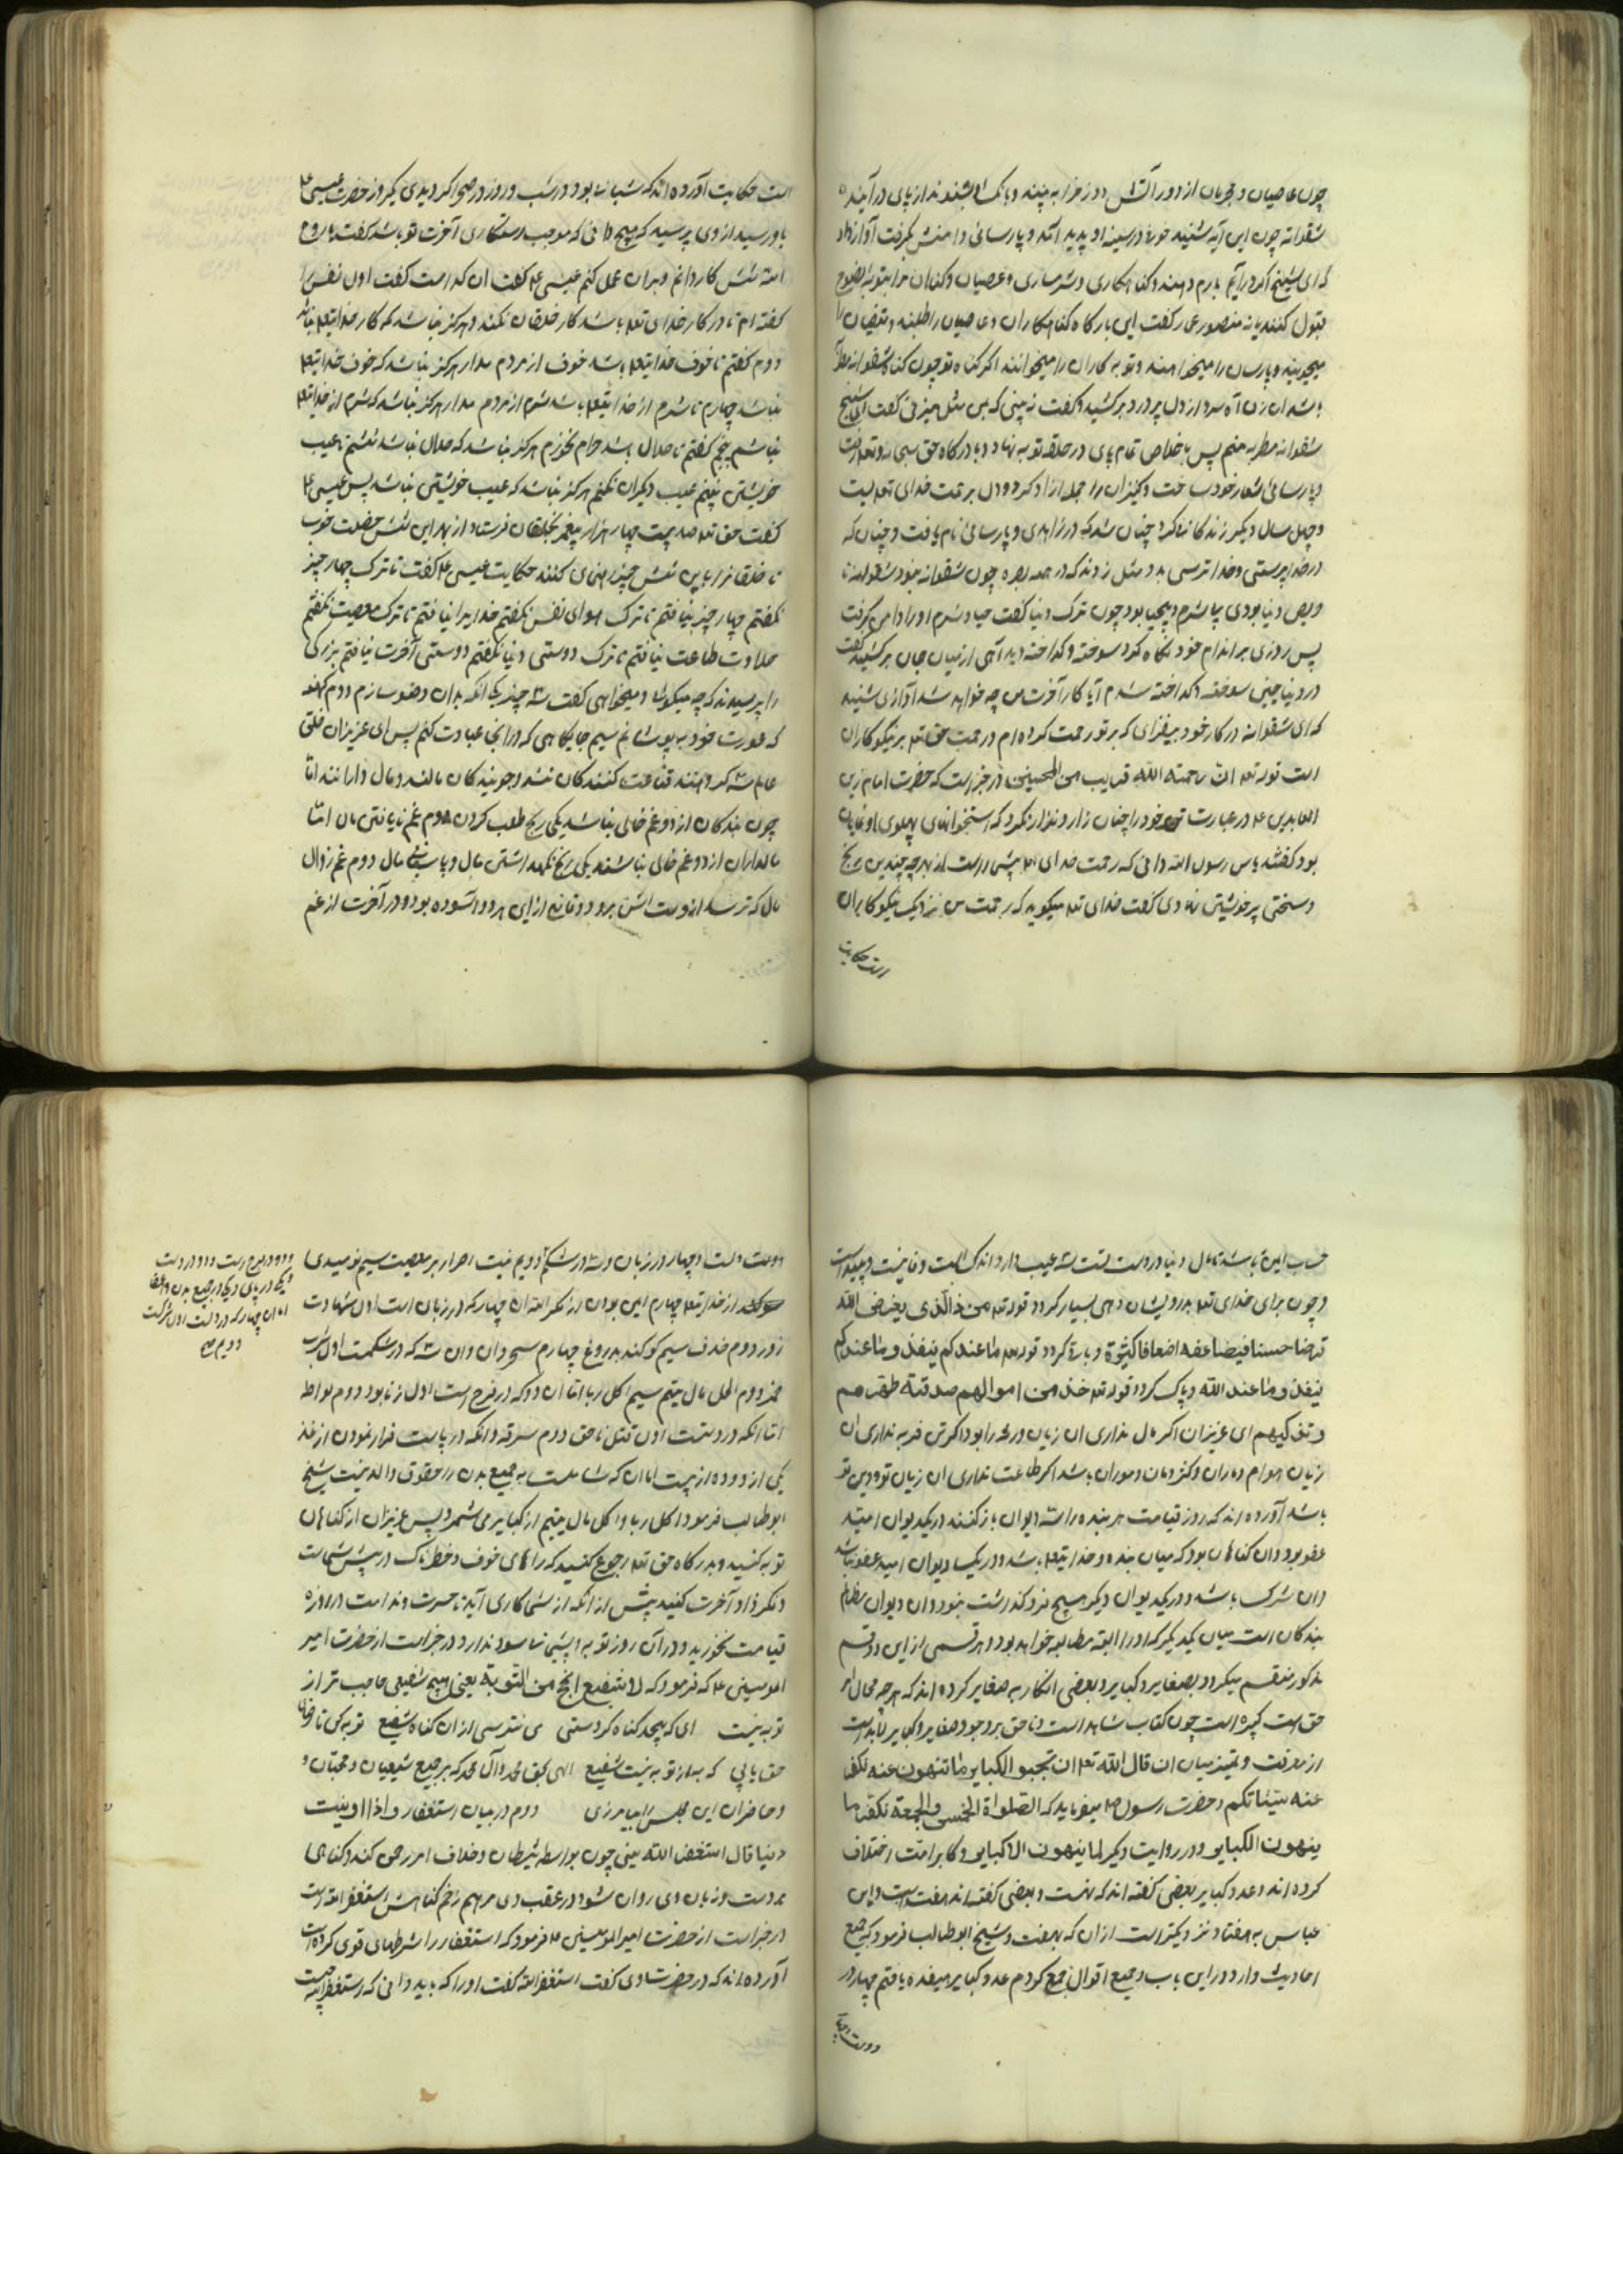 چون عاصیان و مجرمان از دور آتش دوزخ را به بینند و بانک او بشنوند از پای درآیند
شعوانه چون این آیه شنید خوفی در سینه او پدید آمد و پارسائی دامنش بگرفت آواز داد
که ای شیخ اگر درآیم بارم دهند و گناهکاری و شرمساری و عصیان و گناهان مرا بتوبه نصوح
قبول کنند یا نه منصور عمار گفت این بارگاه گناهکاران و عاصیان را طلبند و متقیان را
میجویند و پارسان را میخواهند و توبه کاران را میخوانند اگر گناه تو چون گناه شعوانه مطربه
باشد آن زن آه سرد از دل پر درد برکشید و گفت نه بینی که بس مثل میزنی گفت ای شیخ
شعوانه مطربه منم پس باخلاص تمام پای در حلقه توبه نهاد و با درگاه حق سبحانه و تعالی
و پارسائی شعار خود ساخت و کنیزان را جمله آزاد کرد و دل بر محبت خدای تعالی بست
و چهل سال دیگر زندگانی کرد چنان شد که در زاهدی و پارسائی نام یافت و چنان که
در خداپرستی و خداترسی بدو مثل زدند که در همه بصره چون شعوانه نبود شعوانه تا
حریص دنیا بودی بیشرم و بیحیا بود چون ترک دنیا گفت حیا و شرم او را دامن گرفت
پس روزی بر اندام خود نگاه کرد سوخته و گداخته دید آهی از میان جان برکشید گفت
در دنیا چنین سوخته و گداخته شدم آیا کار آخرت من چه خواهد شد آوازی شنید
که ای شعوانه در کار خود بیفزای که بر تو رحمت کرده‌ام و رحمت حق تعالی بر نیکوکاران
است قوله تعالی ان رحمة الله قریب من المحسنین و در خبر است که حضرت امام زین
العابدین ع در عبادت تن خود را چنان زار و نزار نکرد که استخوانهای پهلوی او نمایان
بود گفتند یابن رسول الله دانی که رحمت خدای پیش است از بهر چه چندین رنج
و سختی بر خویشتن نهادی گفت خدای تعالی میگوید که رحمت من نزدیک نیکوکاران
است حکایت
است حکایت آورده‌اند که شبانی بود در شب و روز در صحرا گردیدی یکروز حضرت عیسی ع
باو رسید از وی پرسید که هیچ دانی که موجب رستگاری آخرت تو باشد گفت یا روح
الله شش کار دانم و بدان عمل کنم عیسی ع گفت آن کدامست گفت اول نفس را
گفته‌ام تا در کار خدای تعالی باشد کار خلقان نکند و هرگز نباشد که کار خدایتعالی نباشد
دوم گفتم تا خوف خدایتعالی باشد خوف از مردم مدار هرگز نباشد که خوف خدایتعالی
نباشد چهارم تا شرم از خدایتعالی باشد شرم از مردم مدار هرگز نباشد که شرم از خدایتعالی
نباشم پنجم گفتم تا حلال باشد حرام نخورم هرگز نباشد که حلال نباشد ششم تا عیب
خویشتن بینم عیب دیگران نکنم هرگز نباشد که عیب خویشتن نباشد پس عیسی ع
گفت حق تعالی صد بیست چهار هزار پیغمبر بخلقان فرستاد از بهر این شش خصلت خوب
تا خلقانرا باین شش چیز راهنمائی کنند حکایت عیسی ع گفت تا ترک چهار چیز
نگفتم چهار چیز نیافتم تا ترک هوای نفس نگفتم خدایرا نیافتم تا ترک معصیت نگفتم
حلاوت طاعت نیافتم تا ترک دوستی دنیا نگفتم دوستی آخرت نیافتم بزرگی
را پرسیدند که چه میگوئی و میخواهی گفت سه چیز یکی آنکه بدان وضو سازم دوم کهنه
که عورت خود به پوشانم سیم جایگاهی که در آنجا عبادت کنم پس ای عزیزان خلق
عالم سه گروهند قناعت کنندگان نشد و جویندگان مالند و مال دارانند اما
چون بندگان از دو غم خالی نباشد یکی رنج طلب کردن دوم غم نایافتن مال اما
مالداران از دو غم خالی نباشند یکی رنج نگهداشتن مال و پاسبانی مال دوم غم زوال
مال که ترسد از دست اش برود و قانع از این هر دو آسوده بود و در آخرت از غم
حساب ایمن باشد تا مال دنیا در دست تست سه عیب دارد اندک است و فانیست و پلید است
و چون برای خدای تعالی بدرویشان دهی بسیار گردد قوله تعالی من ذا الذی یقرض الله
قرضا حسنا فیضاعفه اضعافا کثیرة و باقی گردد قوله تعالی ما عندکم ینفد و ما عندکم
ینفد و ما عند الله و پاک گردد قوله تعالی خذ من اموالهم صدقة تطهرهم
و تزکیهم ای عزیزان اگر مال نداری آن زیان ورثه را بود اگر تن فربه نداری آن
زیان هوام و ماران و کژدمان و موران باشد اگر طاعت نداری آن زیان تو و دین تو
باشد آورده‌اند که روز قیامت هر بنده را سه دیوان باز کنند در یکدیوان امید
عفو بود و آن گناهان بود که میان بنده و خدایتعالی باشد و در یک دیوان امید عفو نباشد
و آن شرک باشد و در یکدیوان دیگر هیچ فرو گذاشت نبود و آن دیوان مظالم
بندگان است میان یکدیگر که او را البته مطالبه خواهد بود و هر قسمی از این دو قسم
مذکور منقسم میگردد بصغایر و کبایر و بعضی انکار به صغایر کرده‌اند که هر چه مخالف امر
حق است کبیره است چون کتاب شاهد است و ناحق بر وجود صغایر و کبایر لابد است
از معرفت و تمیز میان آن قال الله تعالی ان تجتنبوا الکبایر ما تنهون عنه نکفر
عنه سیئاتکم و حضرت رسول ص میفرماید که الصلواة الخمس و الجمعة تکفر ما
ینهون الکبایر و در روایت دیگر لما ینهون الا کبایر و کابر امت اختلاف
کرده‌اند و عدد کبایر بعضی گفته‌اند که نه است و بعضی گفته‌اند هفت است و ابن
عباس به هفتاد نزدیکتر است از آن که بهفت و شیخ ابوطالب فرمود که جمیع
احادیث وارد در این باب و جمیع اقوال جمع کردم عدد کبایر هیفده یافتم چهار در
دوست و چهار
دوست دلست و چهار در زبان و سه در شکم دویم نیت اصرار بر معصیت سیم نومیدی
از خدایتعالی چهارم ایمن بودن از مکر الله آن چهار که در زبان است اول شهادت
زور دوم قذف سیم سوگند بدروغ چهارم سحر دان و آن سه که در شکمست اول شرب
خمر دوم اکل مال یتیم سیم اکل ربا اما آن دو که در فرج است اول زنا بود دوم لواطه
اما آنکه در دستست اول قتل ناحق دوم سرقه و آنکه در پاست فرار نمودن از غذ
یکی از دو و ده از بیست اما آن که شاملست به جمیع بدن را حقوق والدینست شیخ
ابوطالب فرمود اکل ربا و اکل مال یتیم از کبایر می شمرد پس عزیزان از گناهان
توبه کنید و بدرگاه حق تعالی رجوع کنید که راههای خوف و خطرناک در پیش شماست
و مکر زاد آخرت کنید پیش از آنکه از شما کاری آید تا حسرت و ندامت در روز
قیامت نخورید و در آن روز توبه و پشیمانی سود ندارد و در خبر است از حضرت امیر
المومنین ع که فرمود که لا شفیع انجح من التوبة یعنی هیچ شفیعی حاجب تر از
توبه نیست ای که بیحد گناه کردستی می نترسی از آن گناه شفیع توبه کن تا رضای
حق یابی که به از توبه نیست شفیع الهی بحق محمد و آل محمد که بر جمیع شیعیان و محبان و
و حاضران این مجلس را بیامرزی دوم در بیان استغفار و اذا اونیت
دنیا قال استغفر الله یعنی چون بواسطه شیطان و خلاف امر رحمن کند و گناهی
بر دست و زبان وی روان شود در عقب وی مرهم زخم گناهش استغفرالله است
در خبر است از حضرت امیرالمومنین ع فرمود که استغفار را شرطهای قوی کرده است
آورده‌اند که در حضرت وی گفت استغفرالله گفت او را که باید دانی که استغفرالله چیست
و دو در فرج است و دو در دست
و یکی در پای و یکی در جمیع بدن و اعضا
اما آن چهار که در دلست اول شرکت
دویم